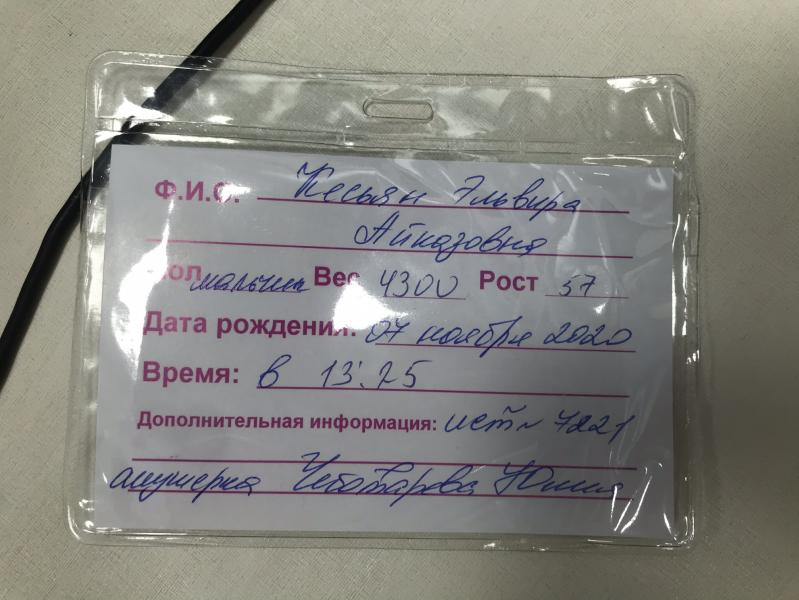 Ф.И.О. Кесьян Эльвира
Айказовна
Пол мальчик Вес 4300 Рост 57
Дата рождения: 07 ноября 2020
Время: в 13:25
Дополнительная информация: ист n 7221
акушерка Чеботарева Юлия